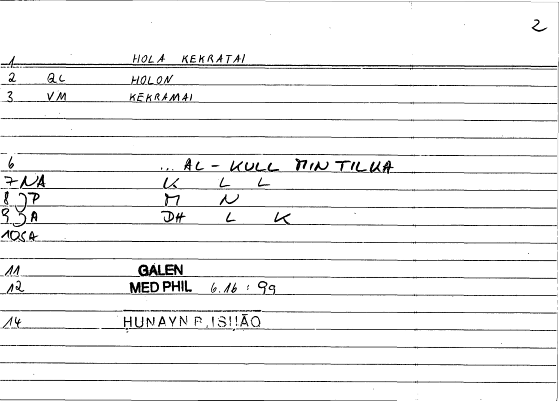 2
1 HOLA KEKRATAI
2 QL HOLON
3 VM KEKRAMAI
6 ... AL - KULL MIN TILKA
7 NA K L L
8 P M N
9 A DH L K
10 SA
11 GALEN
12 MED PHIL 6.16 : 99
14 HUNAYN B. ISḤĀQ